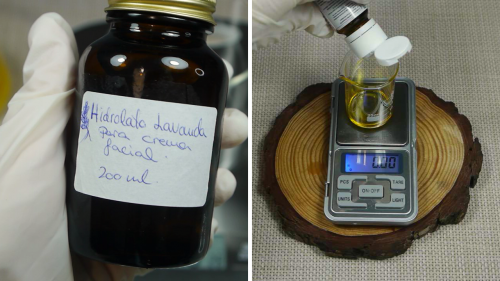 Hidrolato Lavanda
para crema
facial.
200 ml.
0.00
PCS
CARE
ON·OFF
UNITS
LIGHT